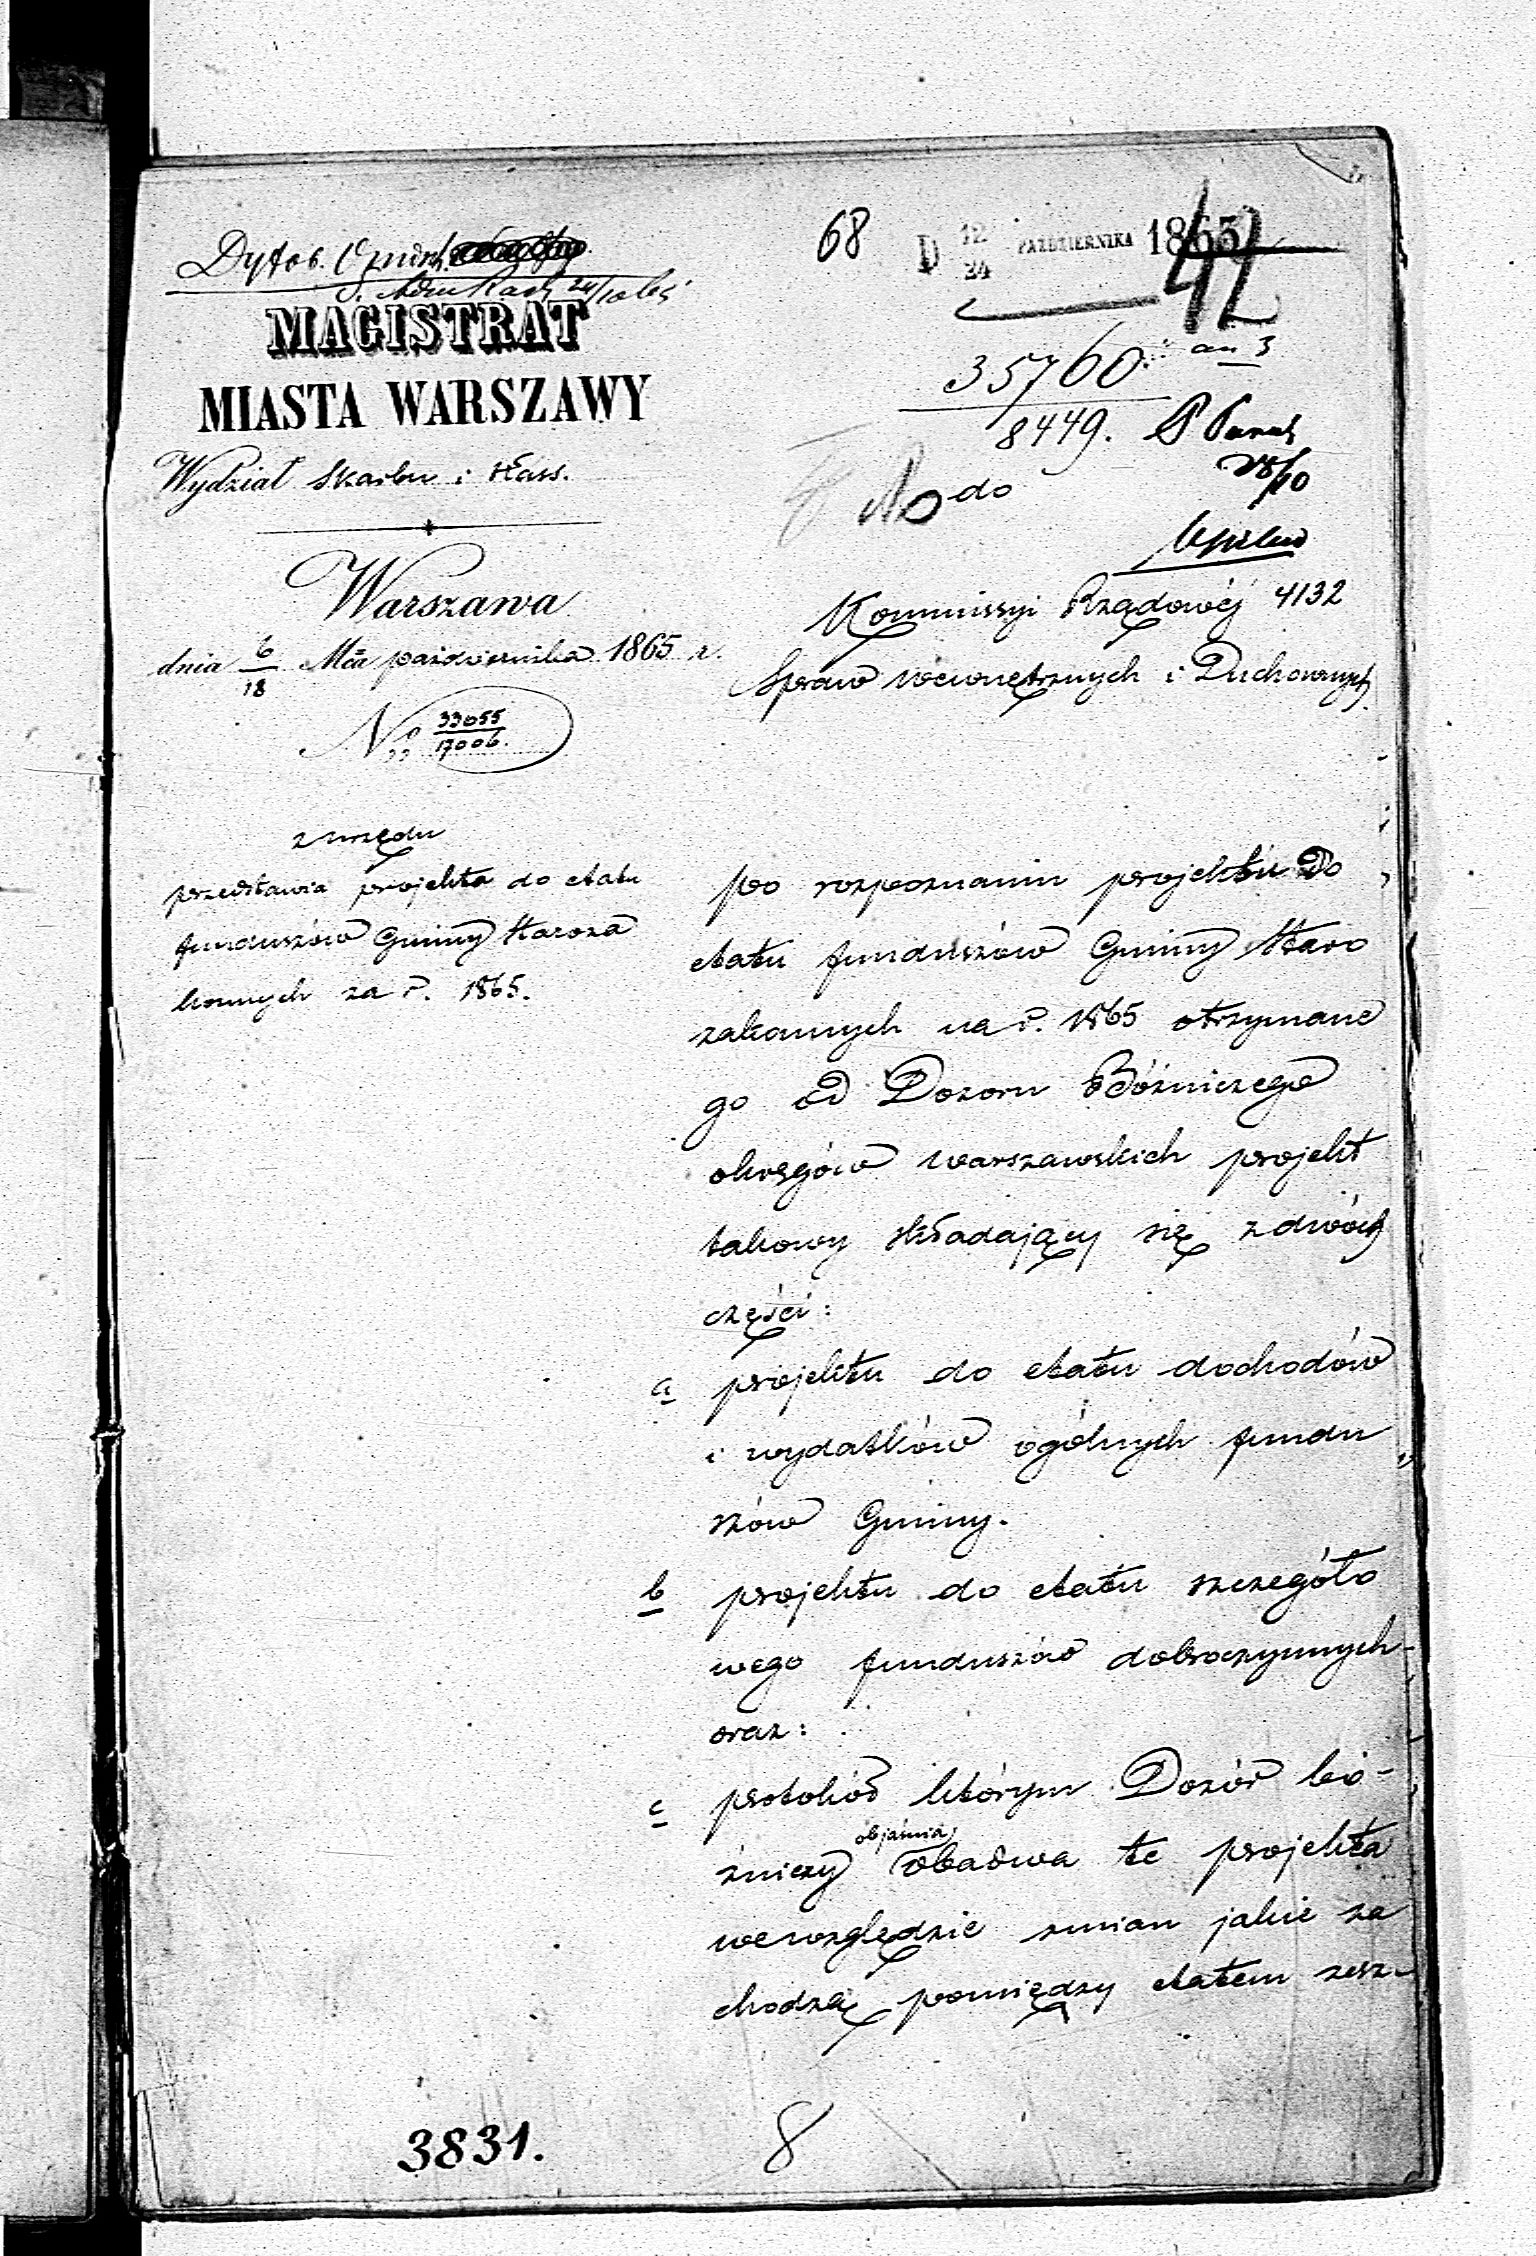 68
D 12/24 PAŹDZIERNIKA 1865
42
MAGISTRAT
MIASTA WARSZAWY
Wydział Skarbu i Kass.
35760
8449.
28/10
do
Warszawa
dnia 6/18 Mca października 1865 r.
No 33055/17006.
Kommissyi Rządowéj 4132
Spraw wewnętrznych i Duchownych.
z urzędu
przedstawia projekta do etatu
funduszów Gminy Staroza
konnych za r. 1865.
po rozpoznaniu projektu do
etatu funduszów Gminy Staro
zakonnych na r. 1865 otrzymane
go od Dozoru Bóżniczego
okręgów warszawskich projekt
takowy składający się z dwóch
części:
a projektu do etatu dochodów
i wydatków ogólnych fundu
szów Gminy.
b projektu do etatu szczegóło
wego funduszów dobroczynnych
oraz:
c protokół którym Dozór bó-
żniczy objaśnia obadwa te projekta
wewzględzie zmian jakie za
chodzą pomiędzy etatem zesz-
3831.
8